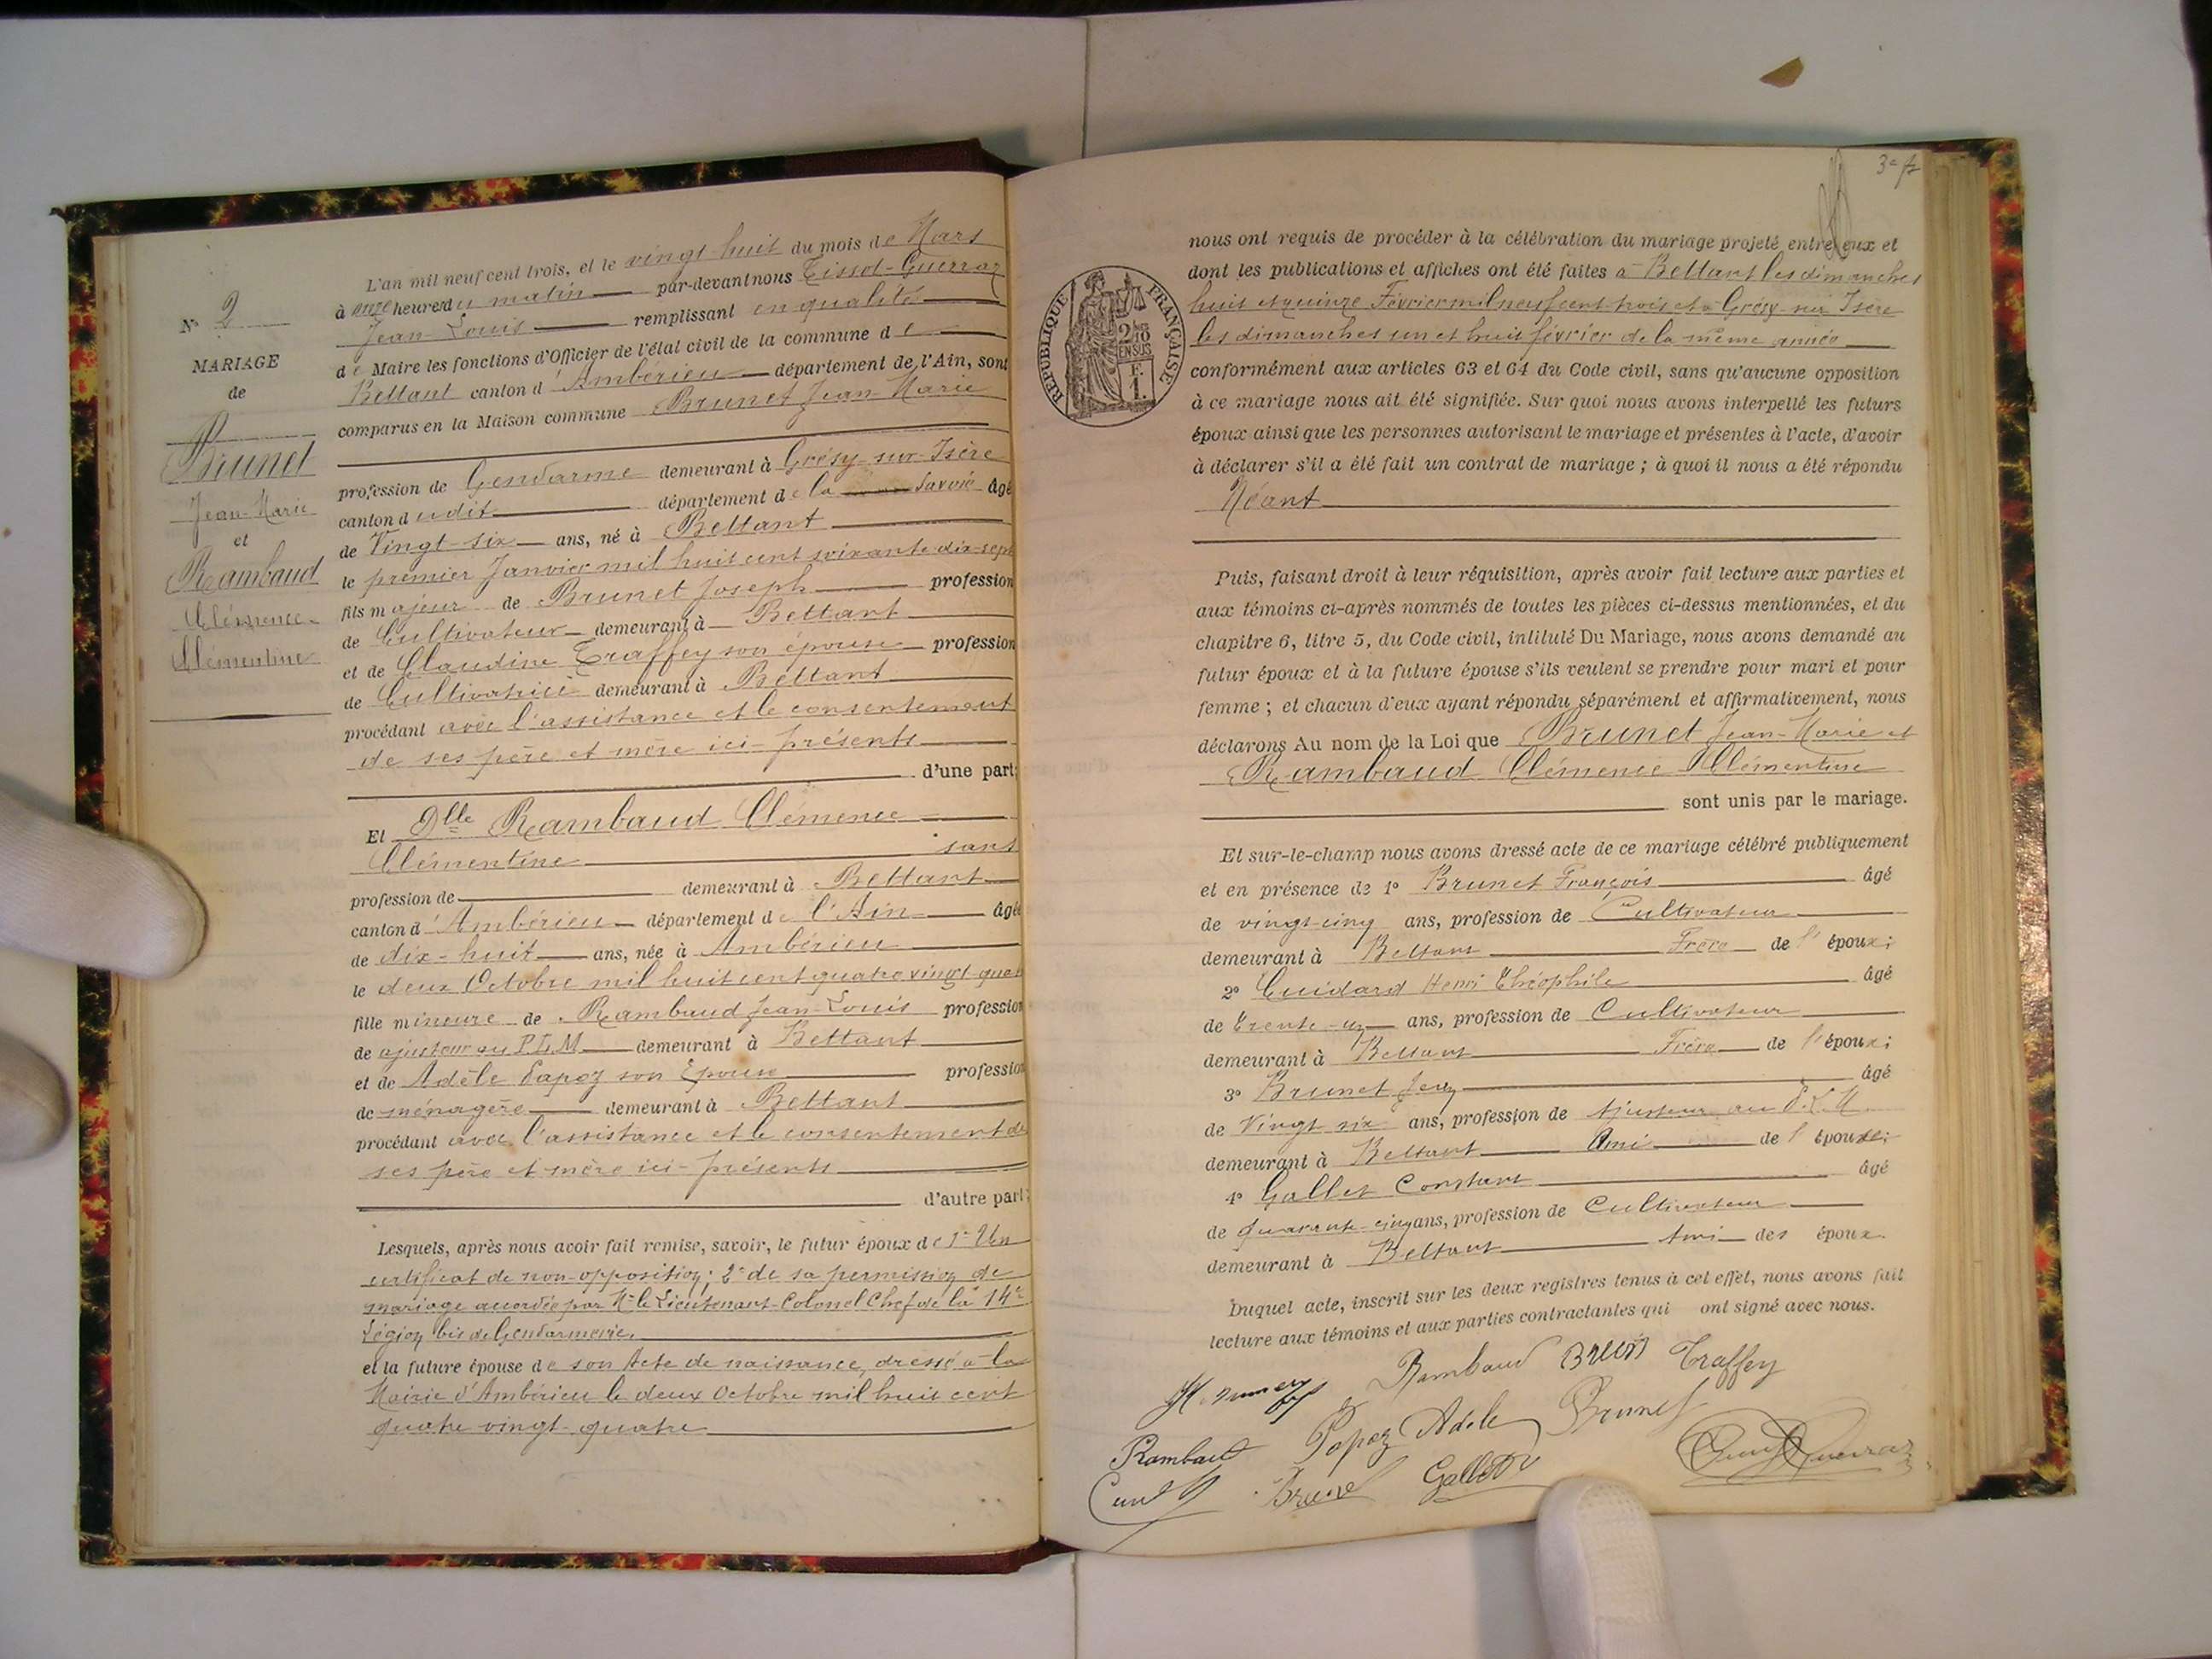 N° 2
MARIAGE
de
Brunet
Jean-Marie
et
Rambaud
Clémence
Clémentine
L'an mil neuf cent trois, et le vingt huit du mois de Mars
à onze heures du matin par-devant nous Tissot-Guerraz
Jean-Louis remplissant en qualité
de Maire les fonctions d'Officier de l'état civil de la commune de
Bettant canton d'Ambérieu département de l'Ain, sont
comparus en la Maison commune Brunet Jean-Marie
profession de Gendarme demeurant à Grésy-sur-Isère
canton dudit département de la Savoie âgé
de Vingt-six ans, né à Bettant
le premier Janvier mil huit cent soixante-dix-sept
fils majeur de Brunet Joseph profession
de Cultivateur demeurant à Bettant
et de Claudine Traffey son épouse profession
de Cultivatrice demeurant à Bettant
procédant avec l'assistance et le consentement
de ses père et mère ici-présents
d'une part;
Et Dlle Rambaud Clémence
Clémentine sans
profession de demeurant à Bettant
canton d'Ambérieu département de l'Ain âgée
de dix-huit ans, née à Ambérieu
le deux Octobre mil huit cent quatre vingt-quat
fille mineure de Rambaud Jean-Louis profession
de ajusteur au P.L.M demeurant à Bettant
et de Adèle Papoz son Epouse profession
de ménagère demeurant à Bettant
procédant avec l'assistance et le consentement de
ses père et mère ici-présents
d'autre part;
Lesquels, après nous avoir fait remise, savoir, le futur époux de 1° Un
certificat de non-opposition; 2° de sa permission de
mariage accordée par Mr le Lieutenant-Colonel Chef de la 14e
Légion bis de Gendarmerie,
et la future épouse de son Acte de naissance, dressé à la
Mairie d'Ambérieu le deux Octobre mil huit cent
quatre vingt-quatre
3e f
RÉPUBLIQUE FRANÇAISE
2/10
EN SUS
F.
1.
nous ont requis de procéder à la célébration du mariage projeté entre eux et
dont les publications et affiches ont été faites à Bettant les dimanches
huit et quinze Février mil neuf cent trois et à Grésy-sur Isère
les dimanches un et huit février de la même année
conformément aux articles 63 et 64 du Code civil, sans qu'aucune opposition
à ce mariage nous ait été signifiée. Sur quoi nous avons interpellé les futurs
époux ainsi que les personnes autorisant le mariage et présentes à l'acte, d'avoir
à déclarer s'il a été fait un contrat de mariage; à quoi il nous a été répondu
Néant
Puis, faisant droit à leur réquisition, après avoir fait lecture aux parties et
aux témoins ci-après nommés de toutes les pièces ci-dessus mentionnées, et du
chapitre 6, titre 5, du Code civil, intitulé Du Mariage, nous avons demandé au
futur époux et à la future épouse s'ils veulent se prendre pour mari et pour
femme; et chacun d'eux ayant répondu séparément et affirmativement, nous
déclarons Au nom de la Loi que Brunet Jean-Marie et
Rambaud Clémence Clémentine
sont unis par le mariage.
Et sur-le-champ nous avons dressé acte de ce mariage célébré publiquement
et en présence de 1° Brunet François âgé
de vingt-cinq ans, profession de Cultivateur
demeurant à Bettant Frère de l'époux;
2° Cuidard Henri Théophile âgé
de Trente-un ans, profession de Cultivateur
demeurant à Bettant Frère de l'époux;
3° Brunet Jean âgé
de Vingt six ans, profession de Ajusteur au P.L.M
demeurant à Bettant Ami de l'épouse;
4° Gallet Constant âgé
de quarante-cinq ans, profession de Cultivateur
demeurant à Bettant Ami des époux.
Duquel acte, inscrit sur les deux registres tenus à cet effet, nous avons fait
lecture aux témoins et aux parties contractantes qui ont signé avec nous.
Rambaud Brunet Traffey
Rambaud Papoz Adèle Brunet
Brunet Gallet